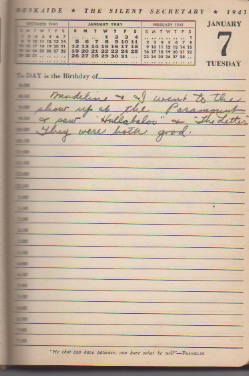 DESKSIDE ★ THE SILENT SECRETARY ★ 1941
DECEMBER 1940
JANUARY 1941
FEBRUARY 1941
S M T W T F S
S M T W T F S
S M T W T F S
1 2 3 4
5 6 7 8 9 10 11
12 13 14 15 16 17 18
19 20 21 22 23 24 25
26 27 28 29 30 31
JANUARY
7
TUESDAY
To DAY is the Birthday of
Madeline & I went to the
show up at the Paramount
& saw "Hullabaloo" & "The Letter"
They were both good.
"He that can have patience, can have what he will"—FRANKLIN